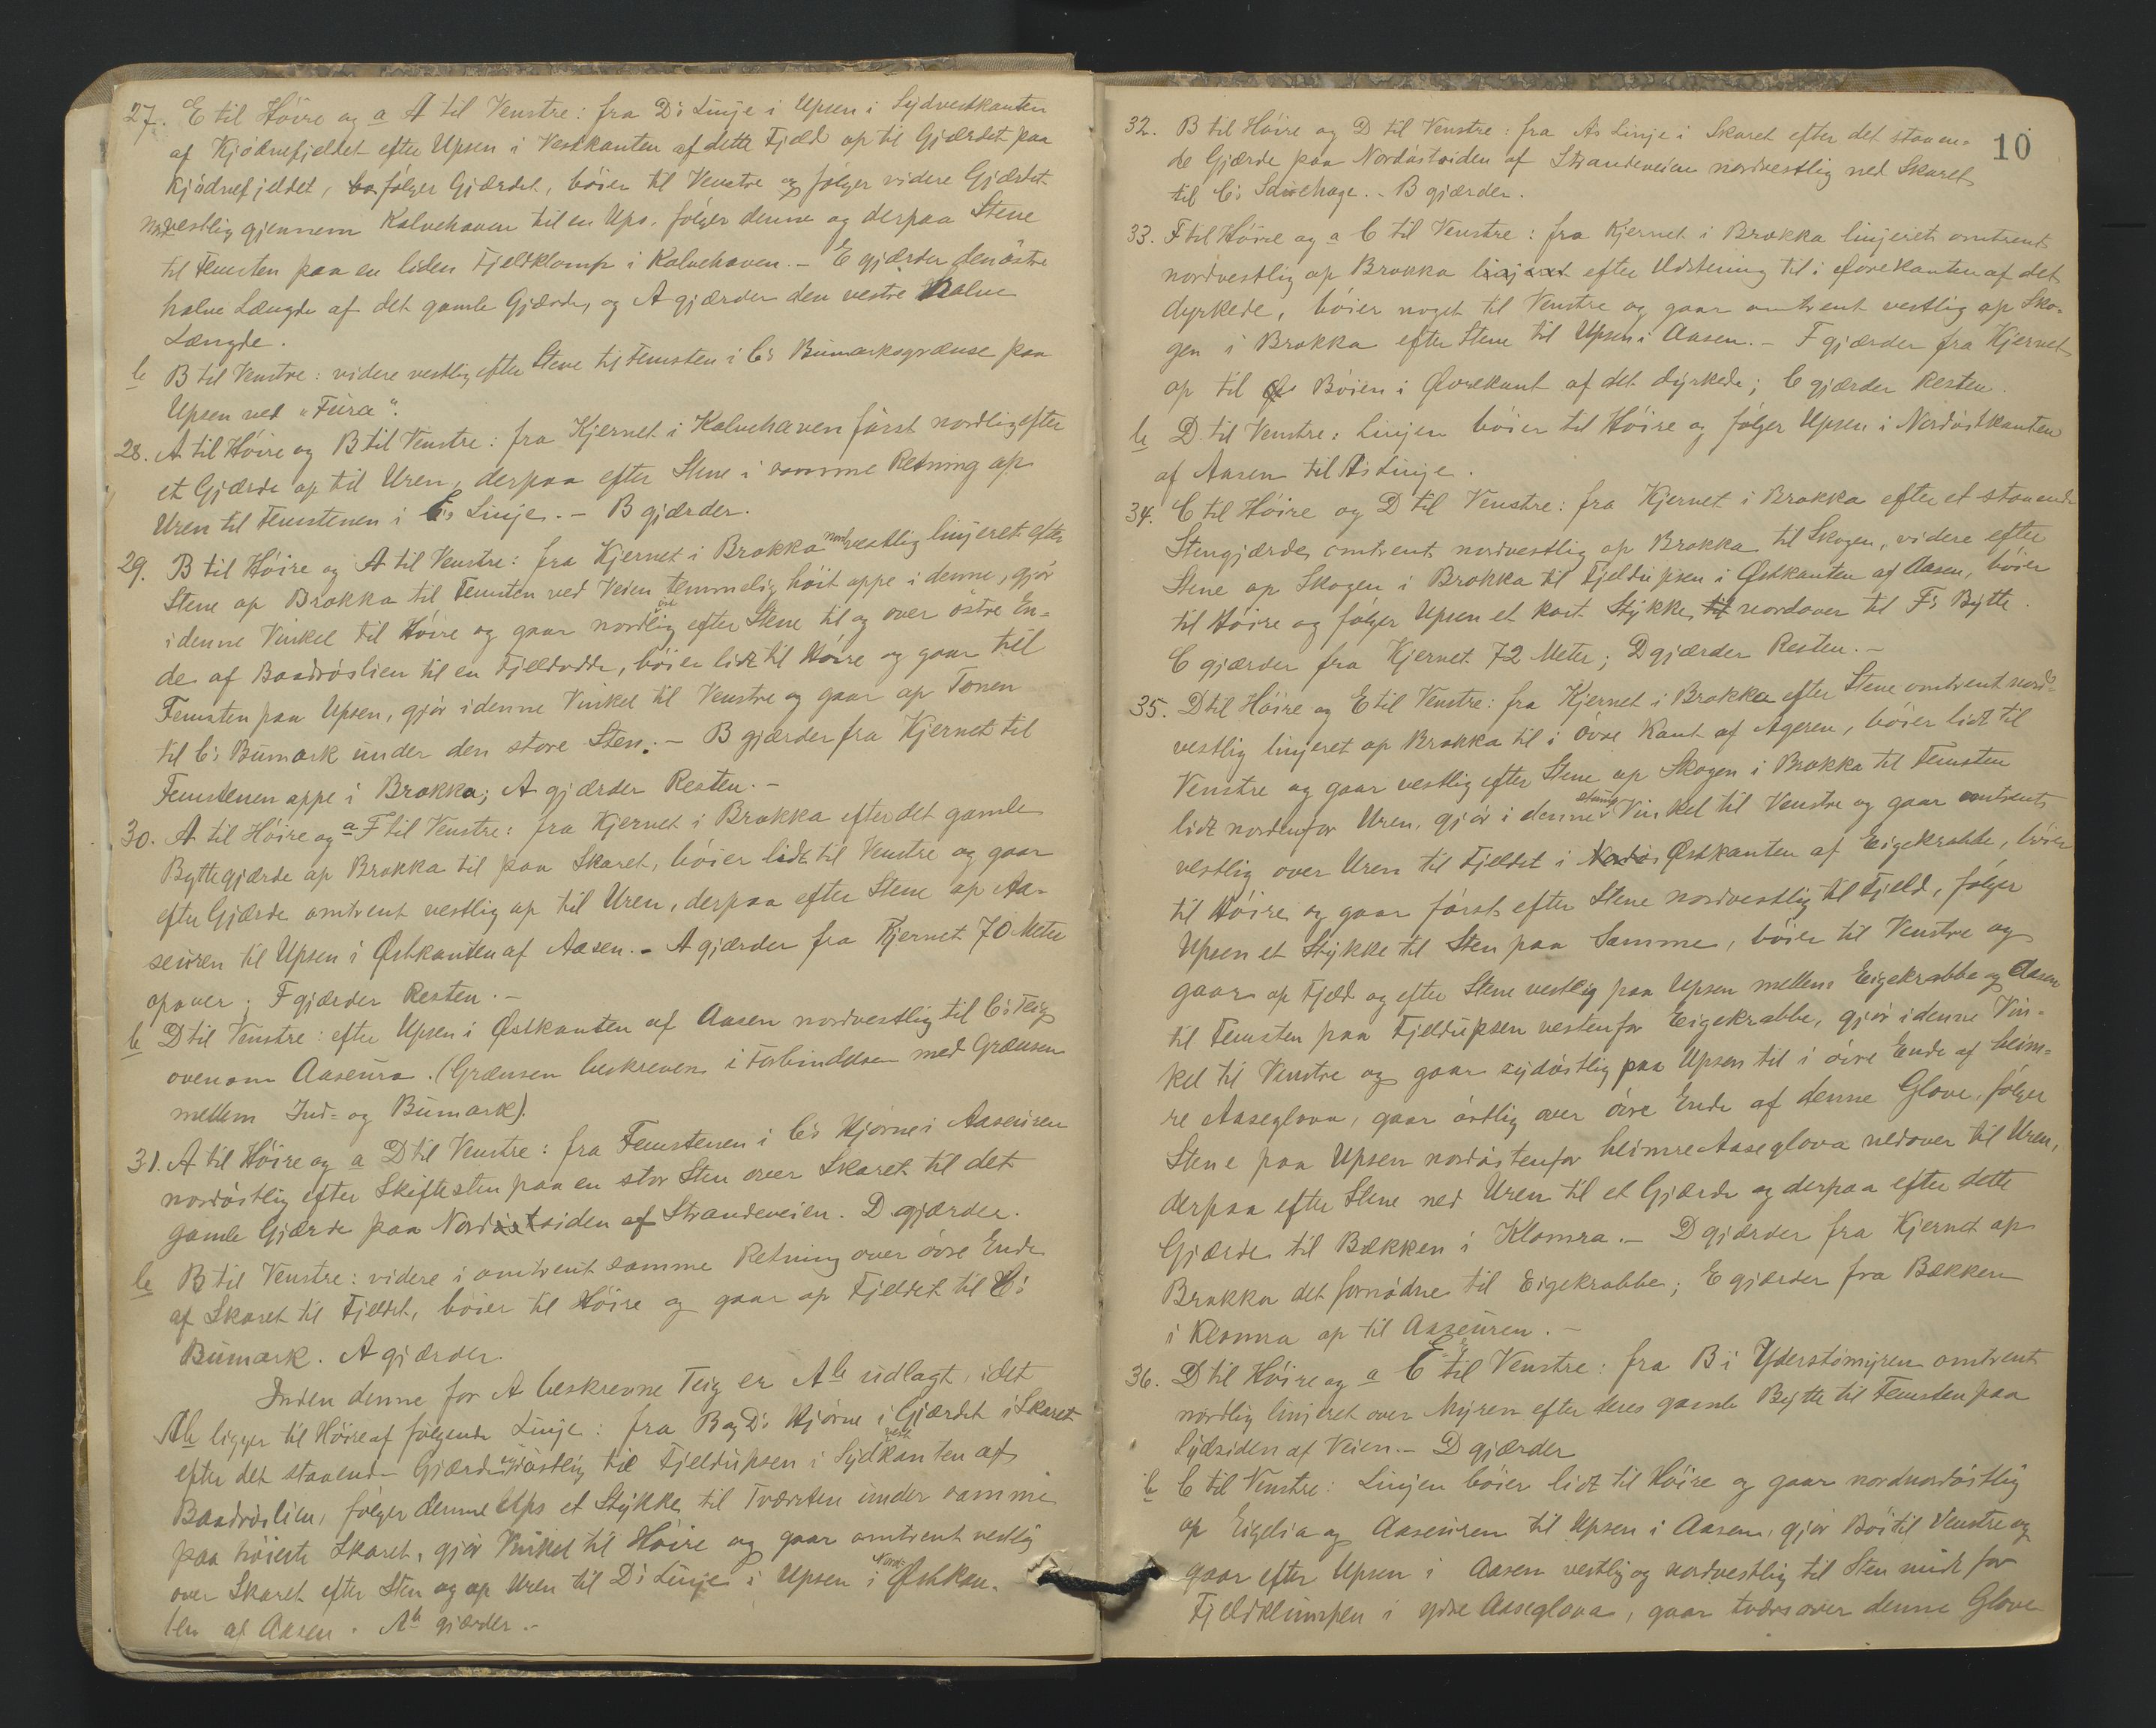 27. E til Höire og a A til Venstre: fra D's Linje i Upsen i Sydvestkanten
af Kjödnefjeldet efter Upsen i Vestkanten af dette Fjeld op til Gjærdet paa
Kjödnefjeldet, følger Gjærdet, böier til Venstre og følger videre Gjærdet
nordvestlig gjennem Kalvehaven til en Ups, følger denne og derpaa Stene
til Femsten paa en liden Fjeldklomp i Kalvehaven. - E gjærder den östre
halve Længde af det gamle Gjærde, og A gjærder den vestre halve
Længde.
b B til Venstre: videre vestlig efter Stene til Femsten i C's Bumarksgrænse paa
Upsen ved "Fura".
28. A til Höire og B til Venstre: fra Kjernet i Kalvehaven först nordlig efter
et Gjærde op til Uren, derpaa efter Stene i samme Retning op
Uren til Femstenen i C's Linje. - B gjærder.
29. B til Höire og A til Venstre: fra Kjernet i Brokka nordvestlig linjeret efter
Stene op Brokka til Femsten ved Veien temmelig höit oppe i denne, gjör
i denne Vinkel til Höire og gaar nordlig efter Stene til og over östre En-
de af Baadröslien til en Fjeldodde, böier lidt til Höire og gaar til
Femsten paa Upsen, gjör i denne Vinkel til Venstre og gaar op Tonen
til C's Bumark under den store Sten. - B gjærder fra Kjernet til
Femstenen oppe i Brokka; A gjærder Resten. -
30. A til Höire og a F til Venstre: fra Kjernet i Brokka efter det gamle
Byttegjærde op Brokka til paa Skaret, böier lidt til Venstre og gaar
efter Gjærde omtrent vestlig op til Uren, derpaa efter Stene op Aa-
seuren til Upsen i Østkanten af Aasen. - A gjærder fra Kjernet 70 Meter
opover; F gjærder Resten. -
b D til Venstre: efter Upsen i Østkanten af Aasen nordvestlig til C's Teig
ovenom Aaseura. (Grænsen beskreven i Forbindelsen med Grænsen
mellem Ind- og Bumark).
31. A til Höire og a D til Venstre: fra Femstenen i C's Hjörne i Aaseuren
nordöstlig efter Skiftesten paa en stor Sten over Skaret til det
gamle Gjærde paa Nordöstsiden af Strandeveien. D gjærder.
b B til Venstre: videre i omtrent samme Retning over övre Ende
af Skaret til Fjeldet, böier til Höire og gaar op Fjeldet til C's
Bumark. A gjærder.
Inden denne for A beskrevne Teig er Ab udlagt, idet
Ab ligger til Höire af følgende Linje: fra B og D's Hjörne i Gjærdet i Skaret
efter det staaende Gjærde sydöstlig til Fjeldupsen i Sydvestkanten af
Baadröslien, følger denne Ups et Stykke til Tværsten under samme
paa höieste Skaret, gjör Vinkel til Höire og gaar omtrent vestlig
over Skaret efter Sten og op Uren til D's Linje i Upsen i Nordöstkan-
ten af Aasen. Ab gjærder. -
10
32. B til Höire og D til Venstre: fra A's Linje i Skaret efter det staaen-
de Gjærde paa Nordöstsiden af Strandeveien nordvestlig ned Skaret
til C's Sauehage. - B gjærder.
33. F til Höire og a C til Venstre: fra Kjernet i Brokka linjeret omtrent
nordvestlig op Brokka linjeret efter Udstening til i Øvrekanten af det
dyrkede, böier noget til Venstre og gaar omtrent vestlig op Sko-
gen i Brokka efter Stene til Upsen i Aasen. - F gjærder fra Kjernet
op til Böien i Øvrekant af det dyrkede; C gjærder Resten.
b D til Venstre: Linjen böier til Höire og følger Upsen i Nordöstkanten
af Aasen til A's Linje.
34. C til Höire og D til Venstre: fra Kjernet i Brokka efter et staaende
Stengjærde omtrent nordvestlig op Brokka til Skogen, videre efter
Stene op Skogen i Brokka til Fjeldupsen i Østkanten af Aasen, böier
til Höire og følger Upsen et kort Stykke til nordover til F's Bytte.
C gjærder fra Kjernet 72 Meter; D gjærder Resten. -
35. D til Höire og E til Venstre: fra Kjernet i Brokka efter Stene omtrent nord-
vestlig linjeret op Brokka til i övre Kant af Ageren, böier lidt til
Venstre og gaar vestlig efter Stene op Skogen i Brokka til Femsten
lidt nordenfor Uren, gjör i denne stump Vinkel til Venstre og gaar omtrent
vestlig over Uren til Fjeldet i Østkanten af Eigekrabbe, böier
til Höire og gaar först efter Stene nordvestlig til Fjeld, følger
Upsen et Stykke til Sten paa Samme, böier til Venstre og
gaar op Fjeld og efter Stene vestlig paa Upsen mellem Eigekrabbe og Aasen
til Femsten paa Fjeldupsen vestenfor Eigekrabbe, gjör i denne Vin-
kel til Venstre og gaar sydöstlig paa Upsen til i övre Ende af heim-
re Aaseglova, gaar östlig over övre Ende af denne Glove, følger
Stene paa Upsen nordöstenfor heimre Aaseglova nedover til Uren,
derpaa efter Stene ned Uren til et Gjærde og derpaa efter dette
Gjærde til Bækken i Klomra. - D gjærder fra Kjernet op
Brokka det fornödne til Eigekrabbe; E gjærder fra Bækken
i Klomra op til Aaseuren. -
36. D til Höire og a E til Venstre: fra B i Yderstömyren omtrent
nordlig linjeret over Myren efter deres gamle Bytte til Femsten paa
Sydsiden af Veien. - D gjærder
b C til Venstre: Linjen böier lidt til Höire og gaar nordnordöstlig
op Eigelia og Aaseuren til Upsen i Aasen, gjör Böi til Venstre og
gaar efter Upsen i Aasen vestlig og nordvestlig til Sten midt for
Fjeldklumpen i ydre Aaseglova, gaar tværs over denne Glove